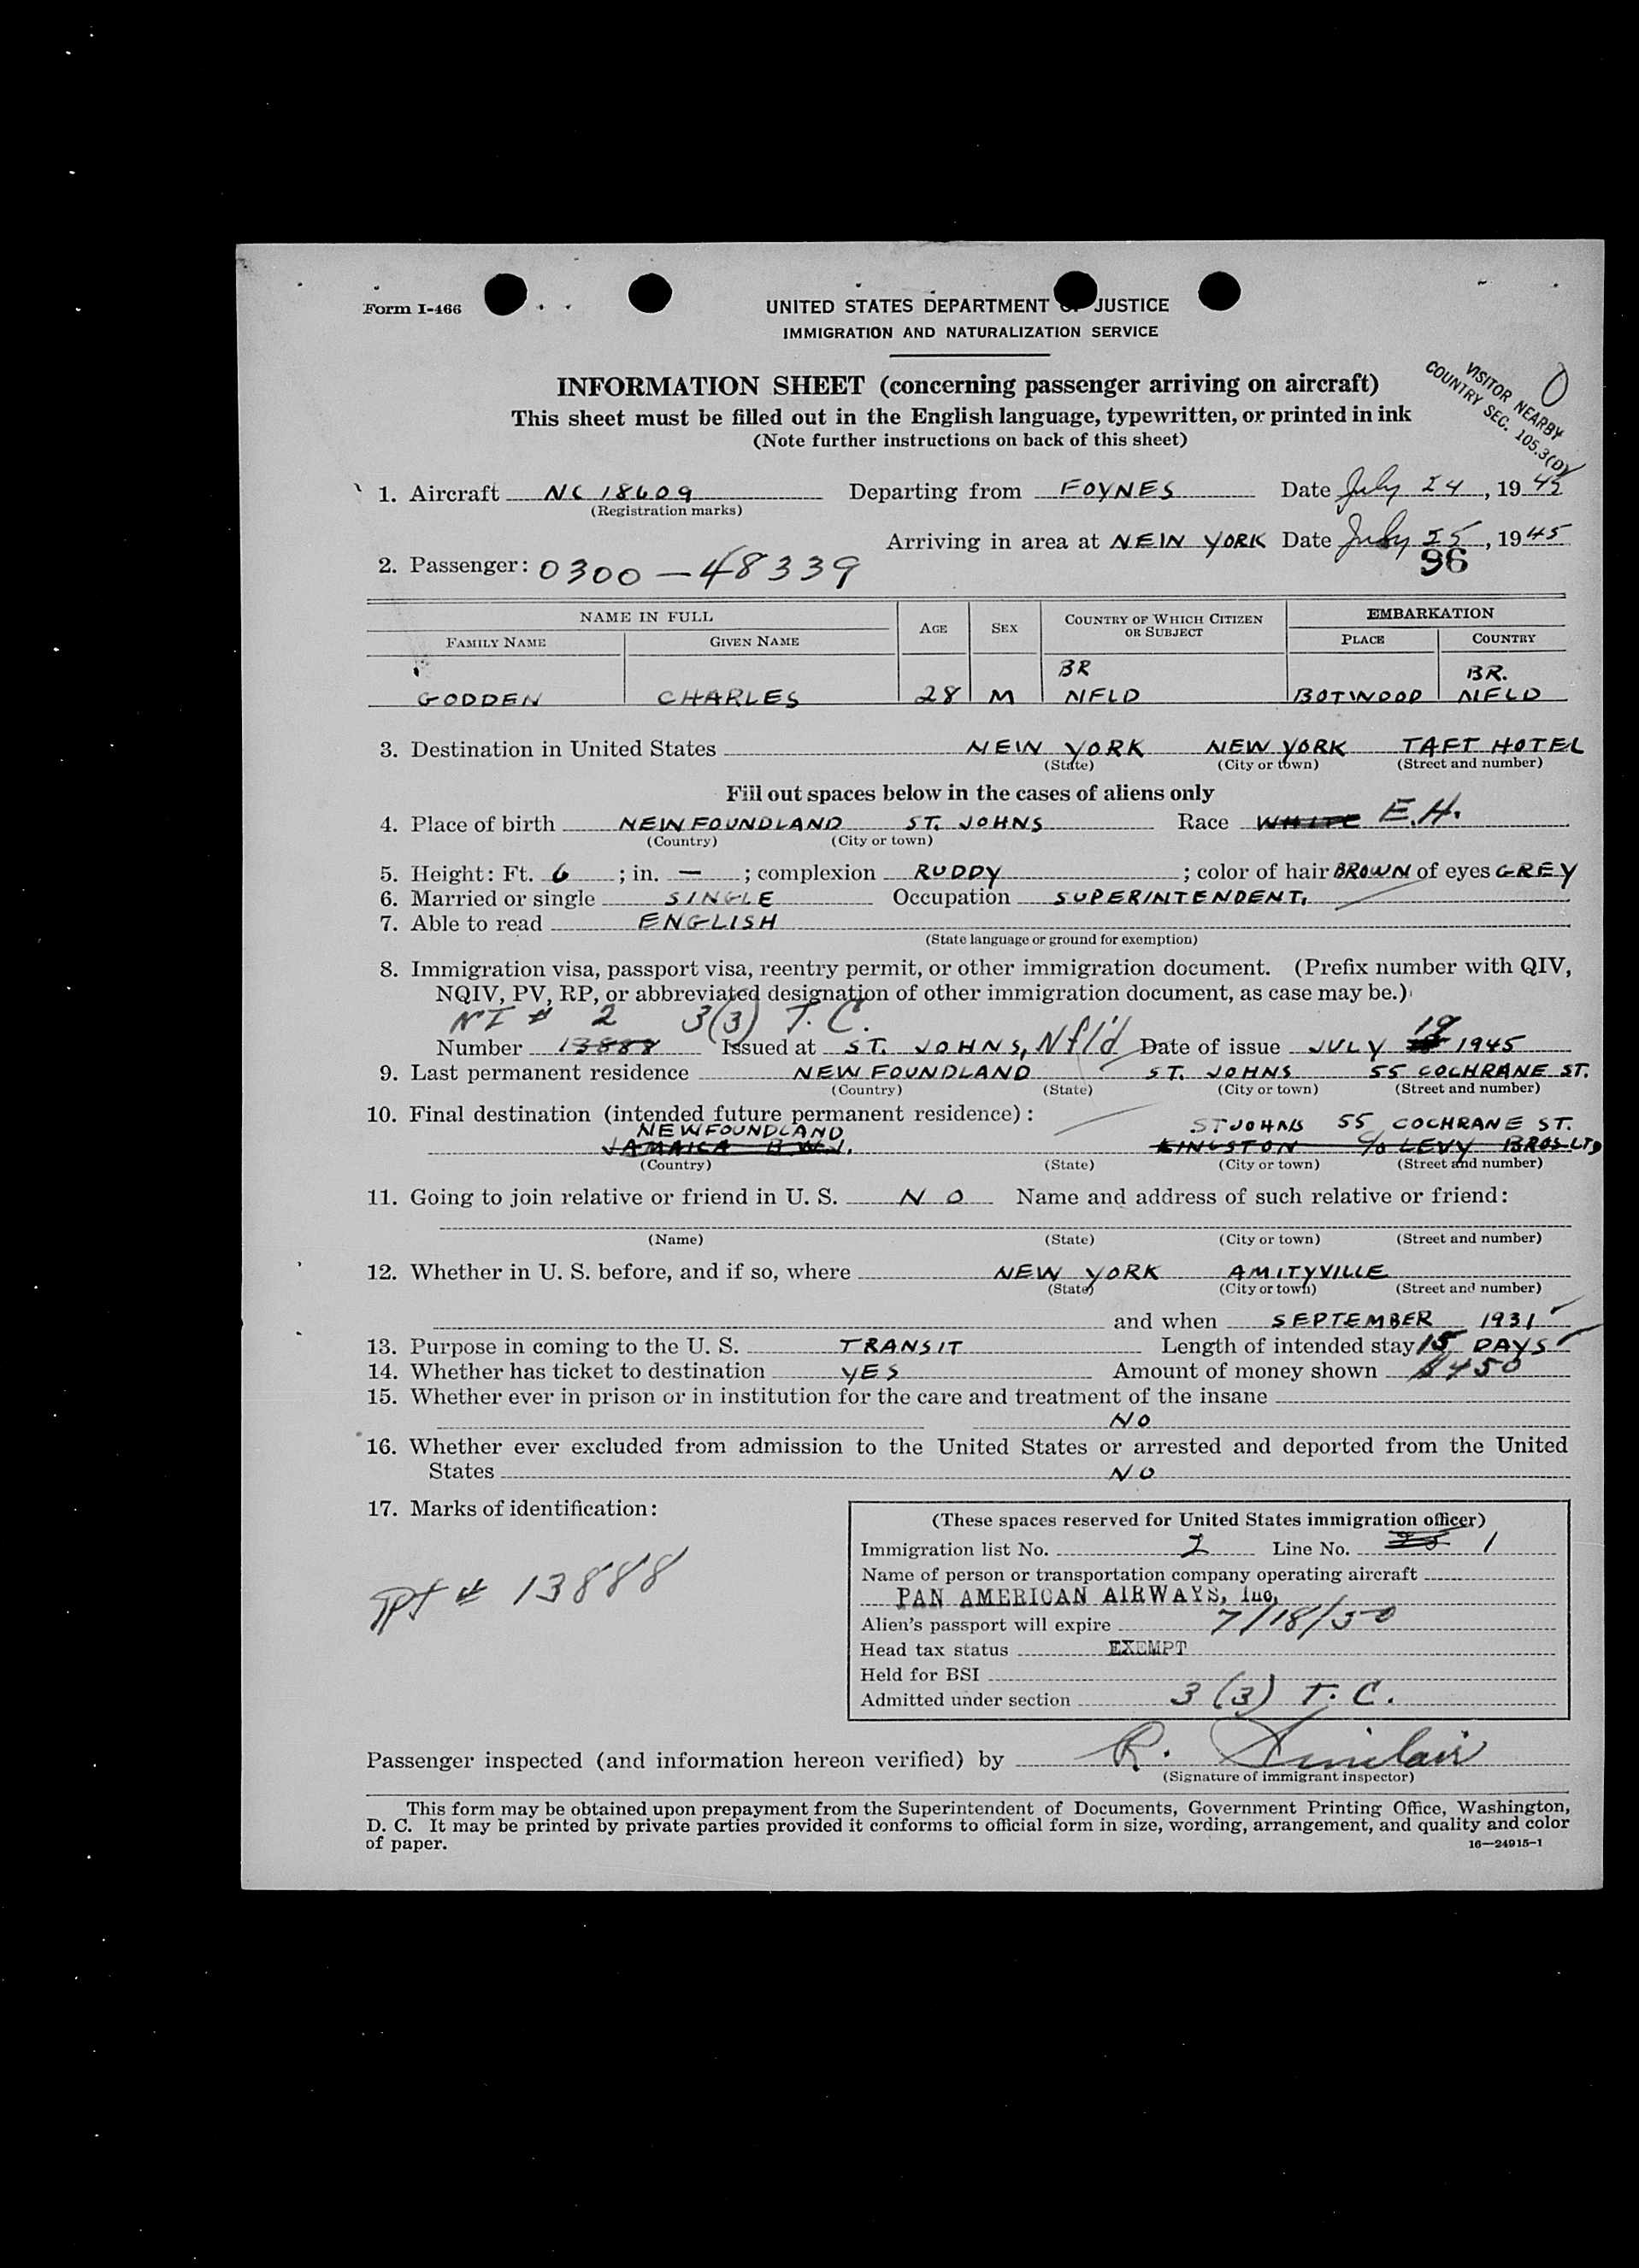 Form I-466
UNITED STATES DEPARTMENT OF JUSTICE
IMMIGRATION AND NATURALIZATION SERVICE
INFORMATION SHEET (concerning passenger arriving on aircraft)
This sheet must be filled out in the English language, typewritten, or printed in ink
(Note further instructions on back of this sheet)
VISITOR NEARBY
COUNTRY SEC. 105.3(D)
0
1. Aircraft NC 18609 Departing from FOYNES Date July 24, 1945
(Registration marks)
Arriving in area at NEW YORK Date July 25, 1945
96
2. Passenger: 0300-48339
NAME IN FULL AGE SEX COUNTRY OF WHICH CITIZEN OR SUBJECT EMBARKATION
FAMILY NAME GIVEN NAME PLACE COUNTRY
BR BR.
GODDEN CHARLES 28 M NFLD BOTWOOD NFLD
3. Destination in United States NEW YORK NEW YORK TAFT HOTEL
(State) (City or town) (Street and number)
Fill out spaces below in the cases of aliens only
4. Place of birth NEWFOUNDLAND ST. JOHNS Race WHITE E.H.
(Country) (City or town)
5. Height: Ft. 6; in. —; complexion RUDDY; color of hair BROWN of eyes GREY
6. Married or single SINGLE Occupation SUPERINTENDENT.
7. Able to read ENGLISH
(State language or ground for exemption)
8. Immigration visa, passport visa, reentry permit, or other immigration document. (Prefix number with QIV,
NQIV, PV, RP, or abbreviated designation of other immigration document, as case may be.)
NI # 2 3(3) T.C.
Number 13888 Issued at ST. JOHNS, Nfl'd Date of issue JULY 19 1945
9. Last permanent residence NEWFOUNDLAND ST. JOHNS 55 COCHRANE ST.
(Country) (State) (City or town) (Street and number)
10. Final destination (intended future permanent residence):
NEWFOUNDLAND ST JOHNS 55 COCHRANE ST.
JAMAICA B.W.I. KINGSTON C/O LEVY BROS LTD
(Country) (State) (City or town) (Street and number)
11. Going to join relative or friend in U. S. NO Name and address of such relative or friend:
(Name) (State) (City or town) (Street and number)
12. Whether in U. S. before, and if so, where NEW YORK AMITYVILLE
(State) (City or town) (Street and number)
and when SEPTEMBER 1931
13. Purpose in coming to the U. S. TRANSIT Length of intended stay 15 DAYS
14. Whether has ticket to destination YES Amount of money shown $450
15. Whether ever in prison or in institution for the care and treatment of the insane
NO
16. Whether ever excluded from admission to the United States or arrested and deported from the United
States NO
17. Marks of identification:
PPT # 13888
(These spaces reserved for United States immigration officer)
Immigration list No. 2 Line No. 1
Name of person or transportation company operating aircraft
PAN AMERICAN AIRWAYS, Inc,
Alien's passport will expire 7/18/50
Head tax status EXEMPT
Held for BSI
Admitted under section 3 (3) T. C.
Passenger inspected (and information hereon verified) by R. Sinclair
(Signature of immigrant inspector)
This form may be obtained upon prepayment from the Superintendent of Documents, Government Printing Office, Washington,
D. C. It may be printed by private parties provided it conforms to official form in size, wording, arrangement, and quality and color
of paper. 16—24915-1